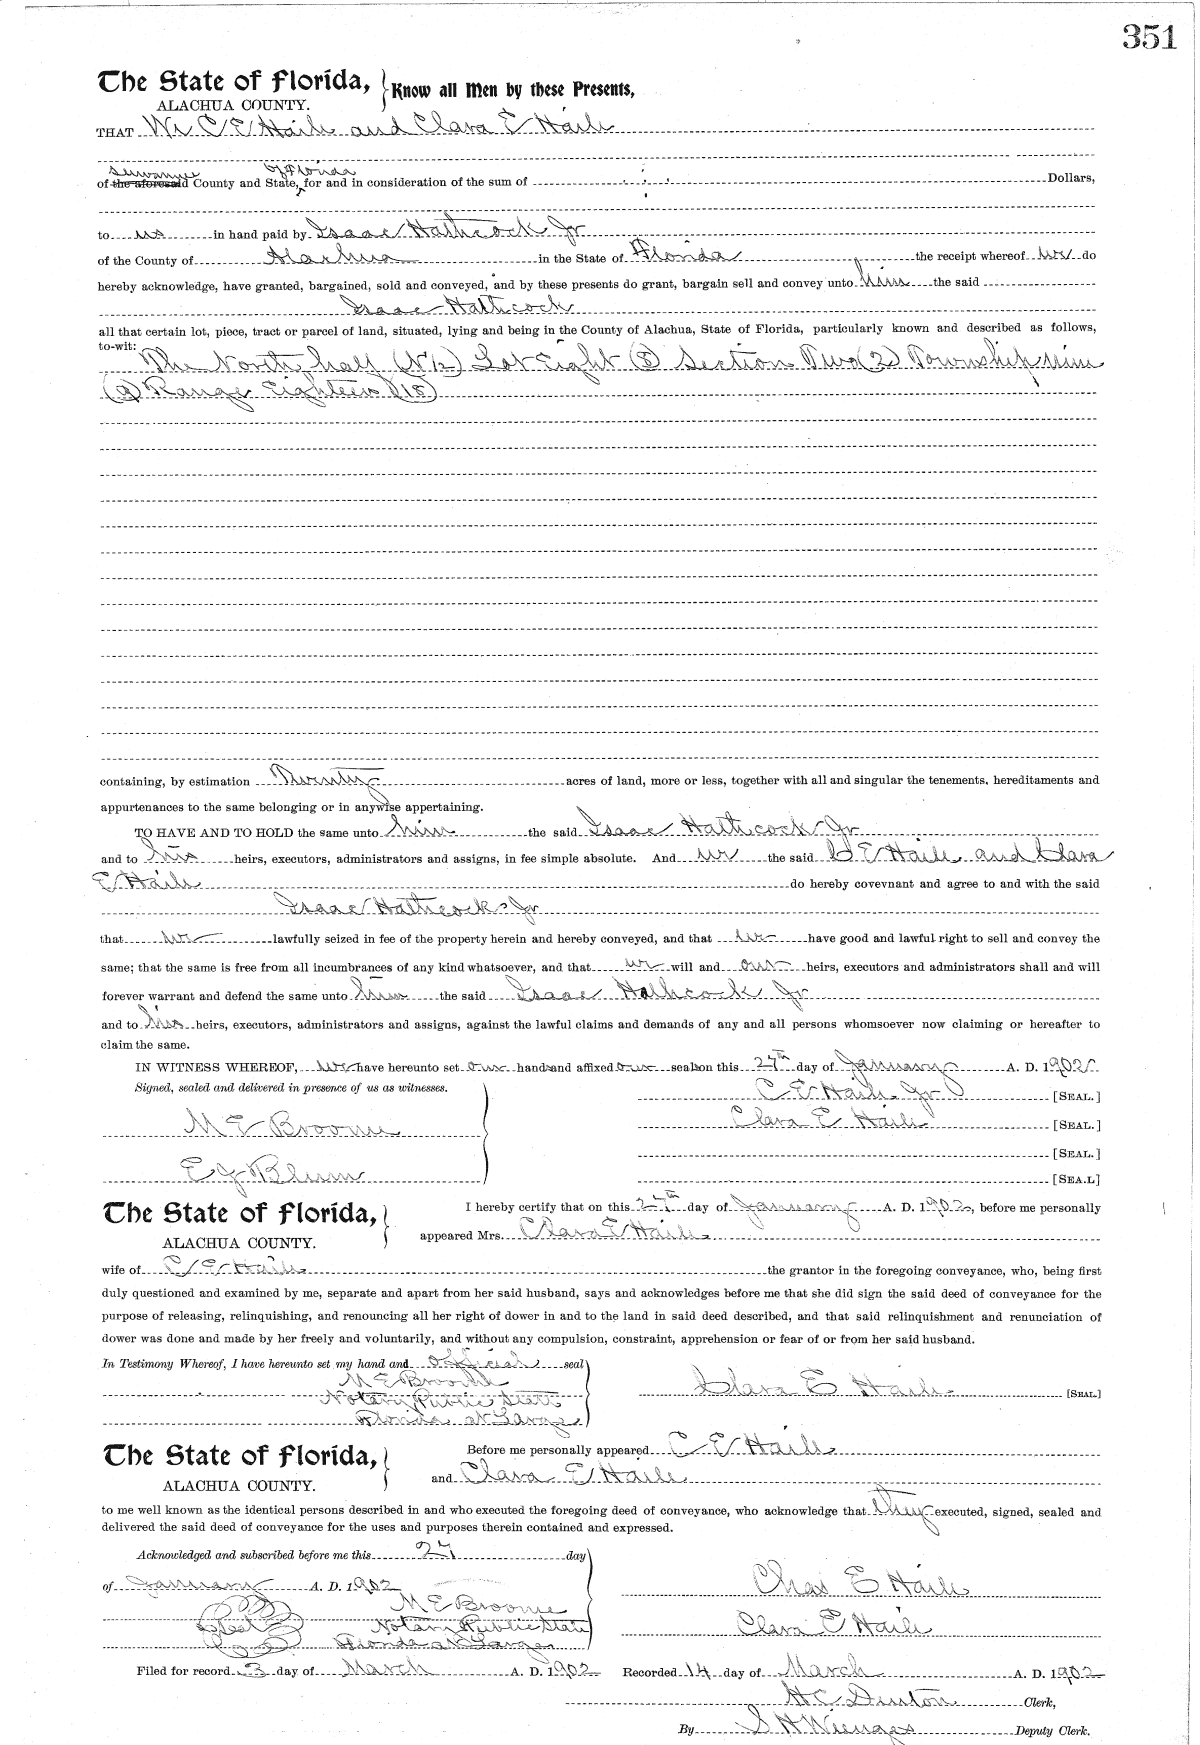 351
The State of Florida, Know all Men by these Presents,
ALACHUA COUNTY.
THAT We C E Haile and Clara E Haile
Suwannee of Florida
of the aforesaid County and State, for and in consideration of the sum of Dollars,
to us in hand paid by Isaac Hathcock Jr
of the County of Alachua in the State of Florida the receipt whereof we do
hereby acknowledge, have granted, bargained, sold and conveyed, and by these presents do grant, bargain sell and convey unto him the said
Isaac Hathcock
all that certain lot, piece, tract or parcel of land, situated, lying and being in the County of Alachua, State of Florida, particularly known and described as follows,
to-wit:
The North half (N½) Lot Eight (8) Section Two (2) Township Nine
(9) Range Eighteen (18)
containing, by estimation Twenty acres of land, more or less, together with all and singular the tenements, hereditaments and
appurtenances to the same belonging or in anywise appertaining.
TO HAVE AND TO HOLD the same unto him the said Isaac Hathcock Jr
and to his heirs, executors, administrators and assigns, in fee simple absolute. And we the said C E Haile and Clara
E Haile do hereby covevnant and agree to and with the said
Isaac Hathcock Jr
that we lawfully seized in fee of the property herein and hereby conveyed, and that we have good and lawful right to sell and convey the
same; that the same is free from all incumbrances of any kind whatsoever, and that we will and our heirs, executors and administrators shall and will
forever warrant and defend the same unto him the said Isaac Hathcock Jr
and to his heirs, executors, administrators and assigns, against the lawful claims and demands of any and all persons whomsoever now claiming or hereafter to
claim the same.
IN WITNESS WHEREOF, we have hereunto set our hands and affixed our seals on this 27th day of January A. D. 1902
Signed, sealed and delivered in presence of us as witnesses. C E Haile Jr [SEAL.]
M E Broome Clara E Haile [SEAL.]
[SEAL.]
E J Blum [SEA.L]
The State of Florida, I hereby certify that on this 27th day of January A. D. 1902, before me personally
ALACHUA COUNTY. appeared Mrs. Clara E Haile
wife of C E Haile the grantor in the foregoing conveyance, who, being first
duly questioned and examined by me, separate and apart from her said husband, says and acknowledges before me that she did sign the said deed of conveyance for the
purpose of releasing, relinquishing, and renouncing all her right of dower in and to the land in said deed described, and that said relinquishment and renunciation of
dower was done and made by her freely and voluntarily, and without any compulsion, constraint, apprehension or fear of or from her said husband.
In Testimony Whereof, I have hereunto set my hand and official seal
M E Broome Clara E Haile [SEAL.]
Notary Public State
Florida at Large
The State of Florida, Before me personally appeared C E Haile
ALACHUA COUNTY. and Clara E Haile
to me well known as the identical persons described in and who executed the foregoing deed of conveyance, who acknowledge that they executed, signed, sealed and
delivered the said deed of conveyance for the uses and purposes therein contained and expressed.
Acknowledged and subscribed before me this 27 day
of January A. D. 1902 Chas E Haile
M E Broome
Seal Notary Public State Clara E Haile
Florida at Large
Filed for record 3 day of March A. D. 1902 Recorded 14 day of March A. D. 1902
H C Denton Clerk,
By S H Wienges Deputy Clerk.